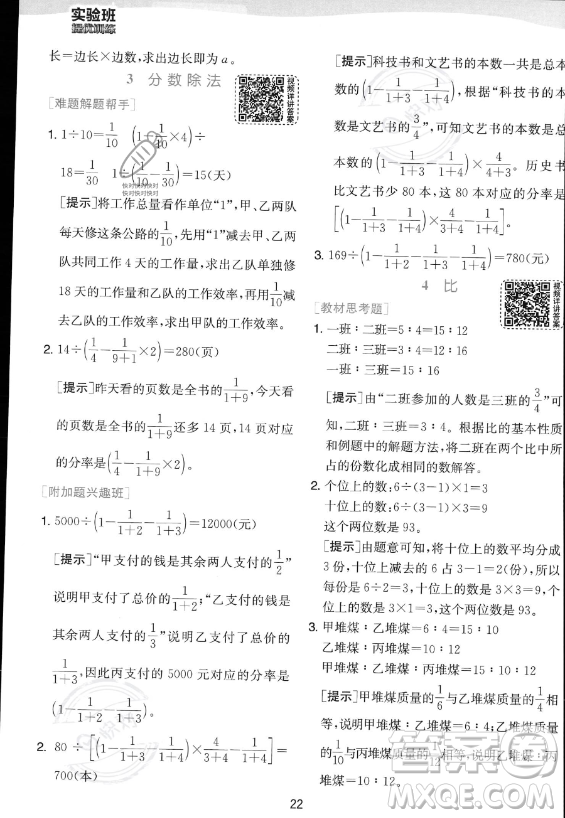 实验班
提优训练
长=边长×边数，求出边长即为a。
3 分数除法
视频详讲答案
[难题解题帮手]
1. 1÷10=1/10 (1-1/10×4)÷
18=1/30 1÷(1/10-1/30)=15(天)
[提示]将工作总量看作单位“1”，甲、乙两队
每天修这条公路的1/10，先用“1”减去甲、乙两
队共同工作 4 天的工作量，求出乙队单独
18 天的工作量与工作效率，再用1/10减
去乙队的工作效率，求出甲队的工作效率。
2. 14÷(1/4-1/(9+1)×2)=280(页)
[提示]昨天看的页数是全书的1/(1+9)，今天看
的页数是全书的1/(1+9)还多 14 页，14 页对应
的分率是(1/4-1/(1+9)×2)。
[附加题兴趣班]
1. 5000÷(1-1/(1+2)-1/(1+3))=12000(元)
[提示]“甲支付的钱是其余两人支付的1/2”
说明甲支付了总价的1/(1+2)；“乙支付的钱是
其余两人支付的1/3”说明乙支付了总价的
1/(1+3)，因此丙支付的 5000 元对应的分率是
(1-1/(1+2)-1/(1+3))。
2. 80÷[(1-1/(1+3)-1/(1+4))×3/4-1/(1+4)]=
700(本)
[提示]科技书和文艺书的本数一共是总本
数的(1-1/(1+3)-1/(1+4))，根据“科技书的本
数是文艺书的3/4”，可知文艺书的本数是总
本数的(1-1/(1+3)-1/(1+4))×4/(3+4)。历史书
比文艺书少 80 本，这 80 本对应的分率是
3. 169÷(1-1/(1+2)-1/(1+3)-1/(1+4))=780(元)
4 比
视频详讲答案
[教材思考题]
1. 一班：二班=5：4=15：12
二班：三班=3：4=12：16
一班：三班=15：16
[提示]由“二班参加的人数是三班的3/4”可
知，二班：三班=3：4。根据比的基本性质
和例题中的解题方法，将二班在两个比中所
占的份数化成相同的数解答。
2. 个位上的数：6÷(3-1)×1=3
十位上的数：6÷(3-1)×3=9
这个两位数是 93。
[提示]由题意可知，将十位上的数平均分成
3 份，十位上的数减去的 6 占 3-1=2(份)，所以
每份是 6÷2=3，个位上的数是 3×1=3，
十位上的数是 3×3=9，这个两位数是 93。
3. 甲堆煤：乙堆煤=6：4=15：10
乙堆煤：丙堆煤=10：12
甲堆煤：丙堆煤=15：12
[提示]甲堆煤质量的1/6与乙堆煤的1/4相
等，说明甲堆煤：乙堆煤=6：4；乙堆煤质量
的1/10与丙堆煤的1/12相等，说明乙堆煤：丙堆
煤=10：12。
22